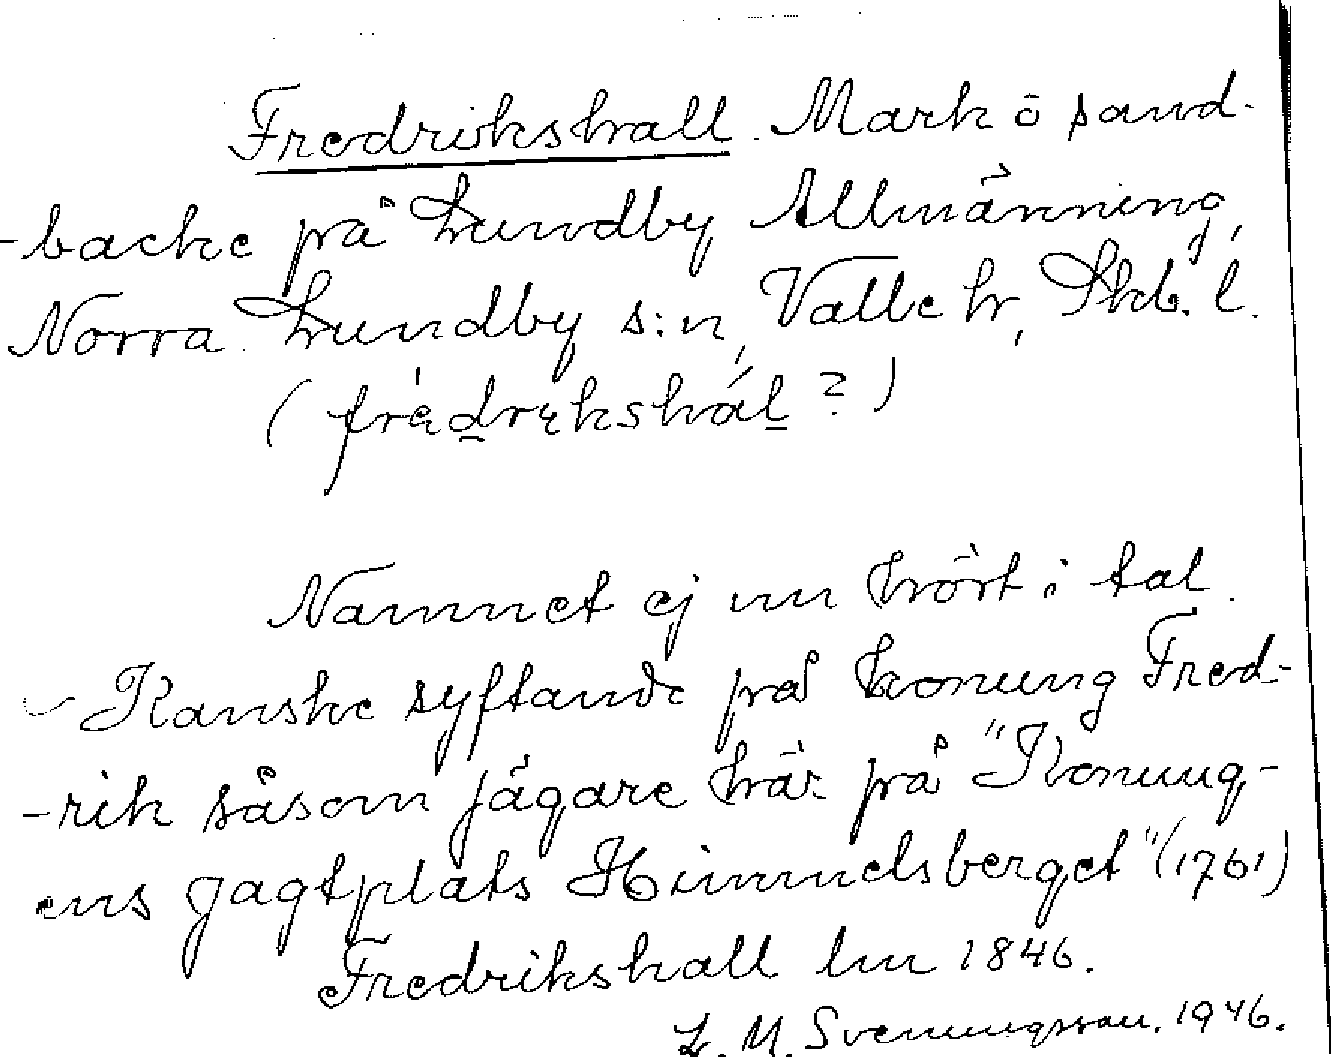 Fredrikshall. Mark ö sand-
-backe på Lundby Allmänning,
Norra Lundby s:n, Valle hr, Skb. l.
(frédrekshál ?)
Namnet ej nu hört i tal.
Kanske syftande på konung Fred-
-rik såsom jägare här på "Konung-
ens Jagtplats Himmelsberget" (1761)
Fredrikshall lm 1846.
L. M. Svenungsson. 1946.